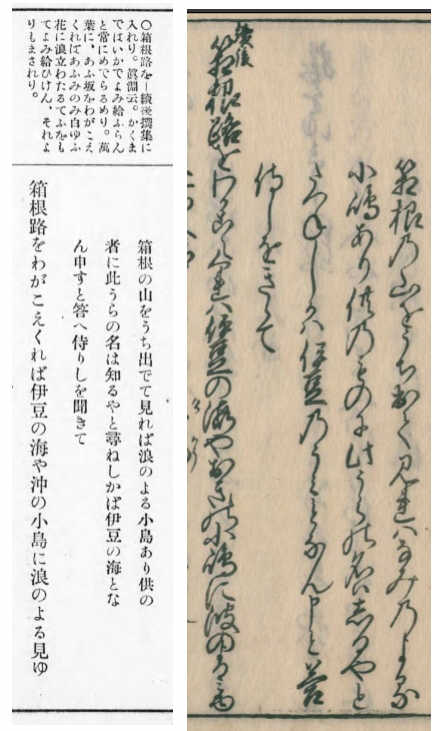 箱根乃山をうち出て見れハなみ乃よる
小嶋あり供乃ものに此うらの名ハしるやと
たつねしかハ伊豆乃うみとなん申と答
侍しをきゝて
續後
箱根路をわかこえくれハ伊豆の海やおきの小嶋に波のよるみ
○箱根路を―續後撰集に
入れり。眞淵云。かくま
でばいかでよみ給ふらん
と常にめでらるめり。萬
葉に、あふ坂をわがこえ
くればあふみのみ白ゆふ
花に浪立わたるてふをも
てよみ給ひけん、それよ
りもまされり。
箱根の山をうち出でて見れば浪のよる小島あり供の
者に此うらの名は知るやと尋ねしかば伊豆の海とな
ん申すと答へ侍りしを聞きて
箱根路をわがこえくれば伊豆の海や沖の小島に浪のよる見ゆ